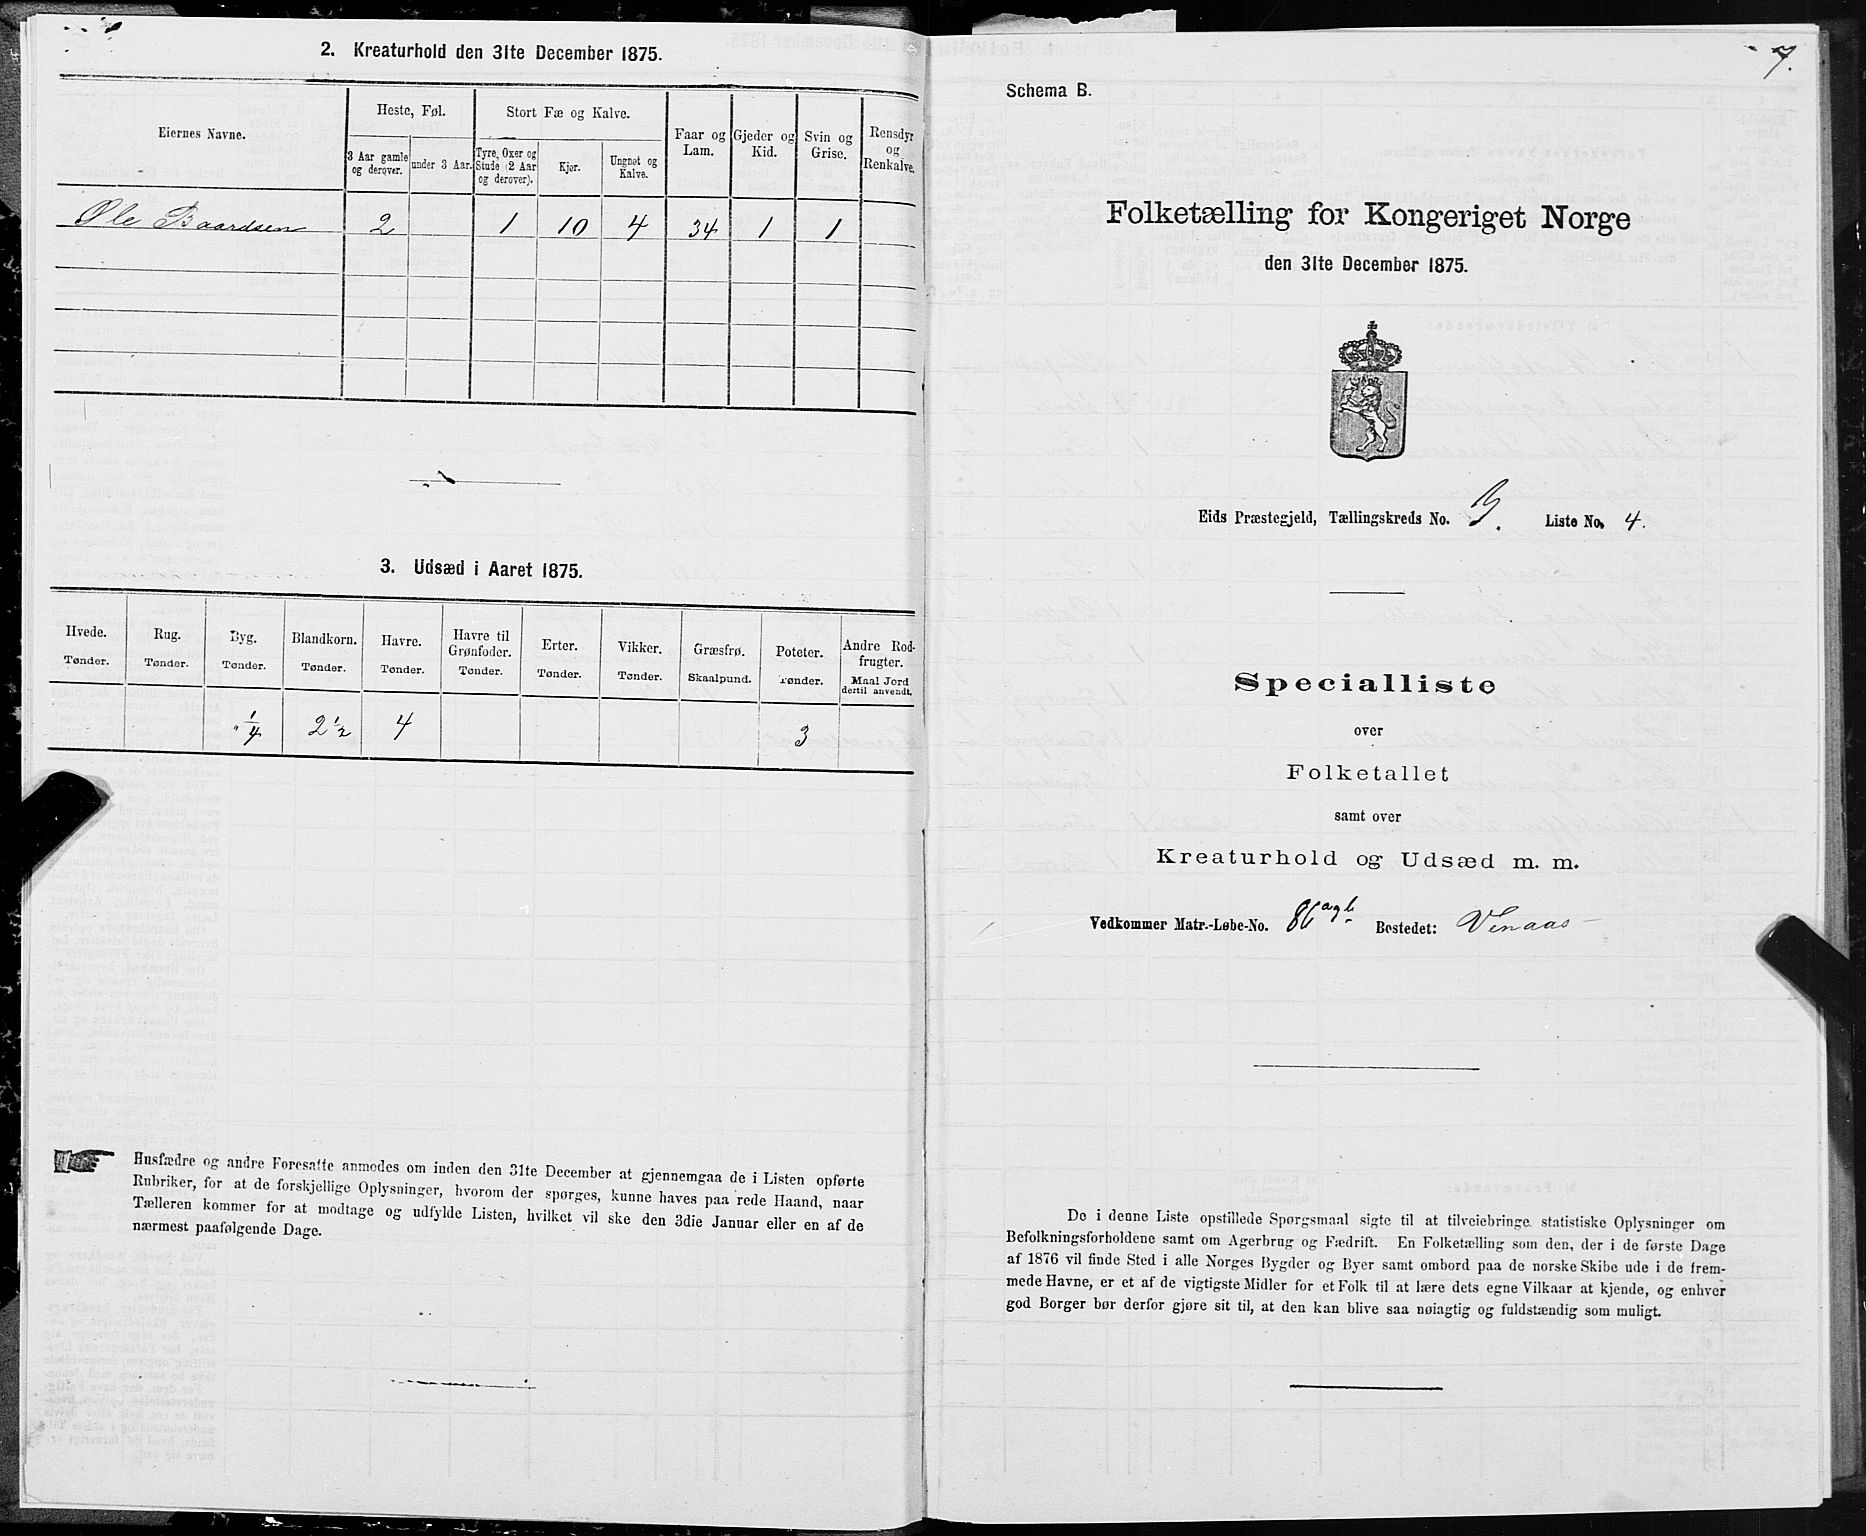 2. Kreaturhold den 31te December 1875.
Eiernes Navne.
Heste, Føl.
Stort Fæ og Kalve.
Faar og Lam.
Gjeder og Kid.
Svin og Grise.
Rensdyr og Renkalve.
3 Aar gamle og derover.
under 3 Aar.
Tyre, Oxer og Stude (2 Aar og derover).
Kjør.
Ungnøt og Kalve.
Ole Baardsen 2 1 10 4 34 1 1
3. Udsæd i Aaret 1875.
Hvede. Rug. Byg. Blandkorn. Havre. Havre til Grønfoder. Erter. Vikker. Græsfrø. Poteter. Andre Rodfrugter.
Tønder. Tønder. Tønder. Tønder. Tønder. Tønder. Tønder. Tønder. Skaalpund. Tønder. Maal Jord dertil anvendt.
" 1/4 2 1/2 4 3
Husfædre og andre Foresatte anmodes om inden den 31te December at gjennemgaa de i Listen opførte
Rubriker, for at de forskjellige Oplysninger, hvorom der spørges, kunne haves paa rede Haand, naar
Tælleren kommer for at modtage og udfylde Listen, hvilket vil ske den 3die Januar eller en af de
nærmest paafølgende Dage.
7.
Schema B.
Folketælling for Kongeriget Norge
den 31te December 1875.
Eids Præstegjeld, Tællingskreds No. 3. Liste No. 4.
Specialliste
over
Folketallet
samt over
Kreaturhold og Udsæd m. m.
Vedkommer Matr.-Løbe-No. 86 a g b Bostedet: Venaas
De i denne Liste opstillede Spørgsmaal sigte til at tilveiebringe statistiske Oplysninger om
Befolkningsforholdene samt om Agerbrug og Fædrift. En Folketælling som den, der i de første Dage
af 1876 vil finde Sted i alle Norges Bygder og Byer samt ombord paa de norske Skibe ude i de frem-
mede Havne, er et af de vigtigste Midler for et Folk til at lære dets egne Vilkaar at kjende, og enhver
god Borger bør derfor gjøre sit til, at den kan blive saa nøiagtig og fuldstændig som muligt.